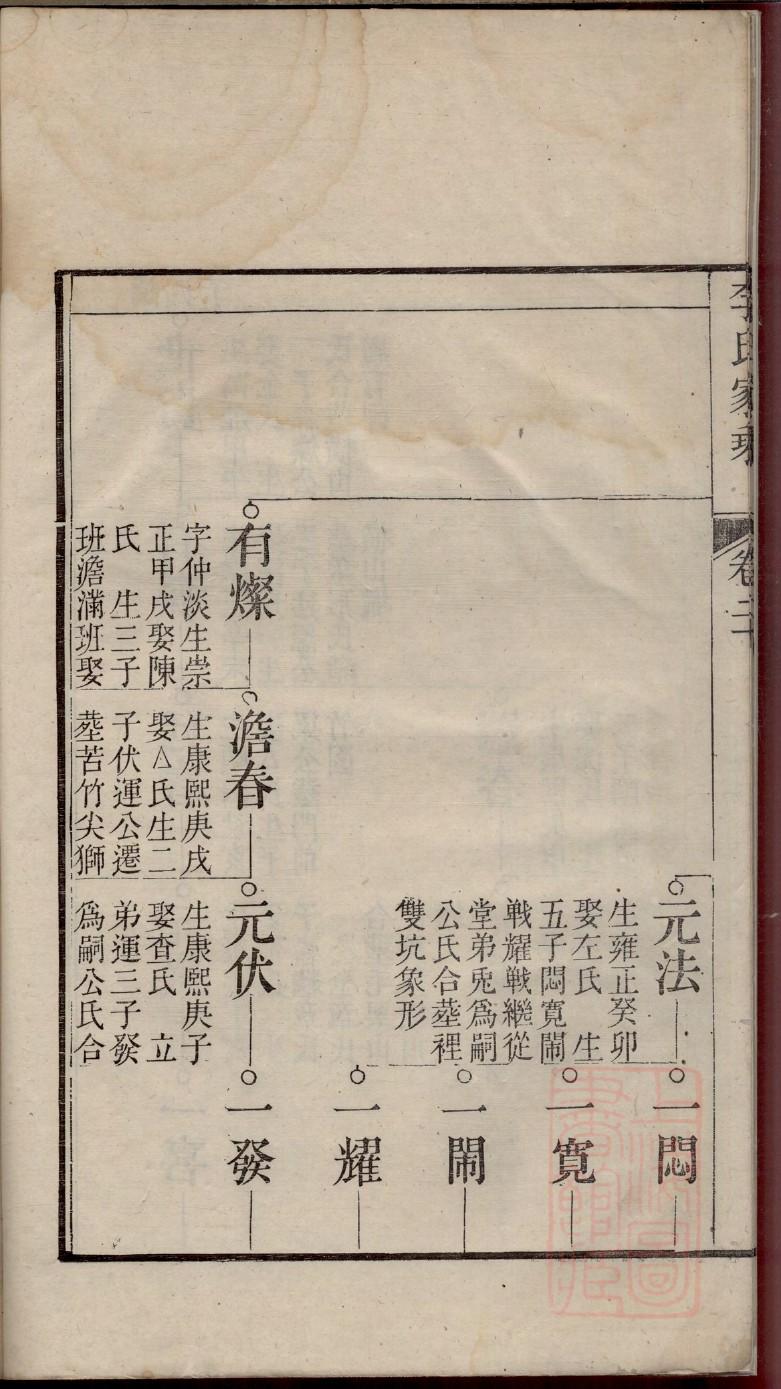 李氏家乘
卷二
元法
生雍正癸卯
娶左氏　生
五子悶寬鬧
戰耀戰繼從
堂弟兎爲嗣
公氏合塟裡
雙坑象形
一悶
一寬
一鬧
一耀
有燦
字仲淡生崇
正甲戌娶陳
氏　生三子
班澹滿班娶
澹春
生康熙庚戌
娶△氏生二
子伏運公遷
塟苦竹尖獅
元伏
生康熙庚子
娶查氏　立
弟運三子發
爲嗣公氏合
一發